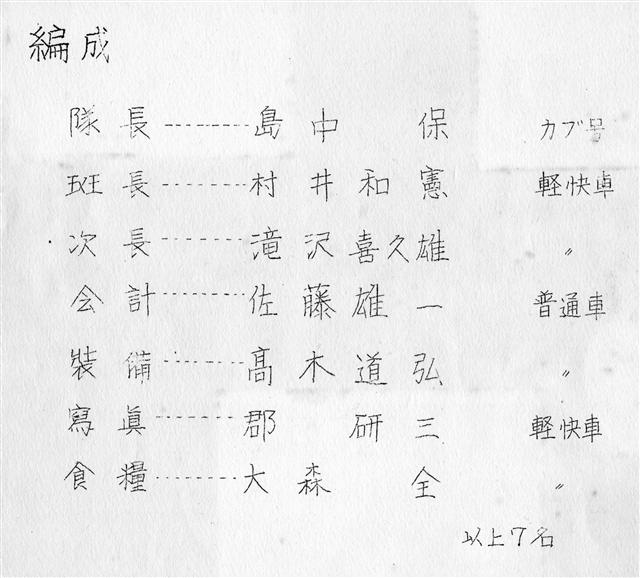 編成
隊長--------島中 保 カブ号
班長-------村井和憲 軽快車
次長-------滝沢喜久雄 〃
会計-------佐藤雄一 普通車
裝備-------髙木道弘 〃
寫眞-------郡 研三 軽快車
食糧-------大森 全 〃
以上7名